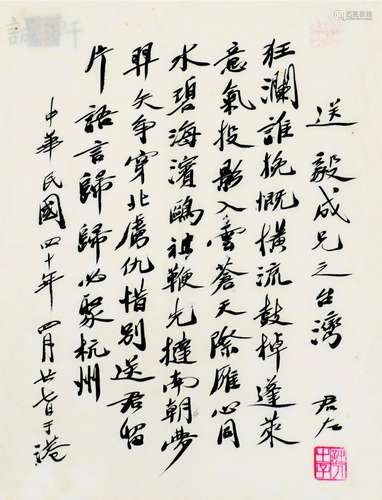 送毅成兄之台灣 君左
狂瀾誰挽慨橫流鼓棹蓬萊
意氣投影入雲蒼天際雁心同
水碧海濱鷗祖鞭先撻南朝夢
羿矢爭穿北虜仇惜別送君留
片語言歸歸必聚杭州
中華民國四十年四月廿七日于港